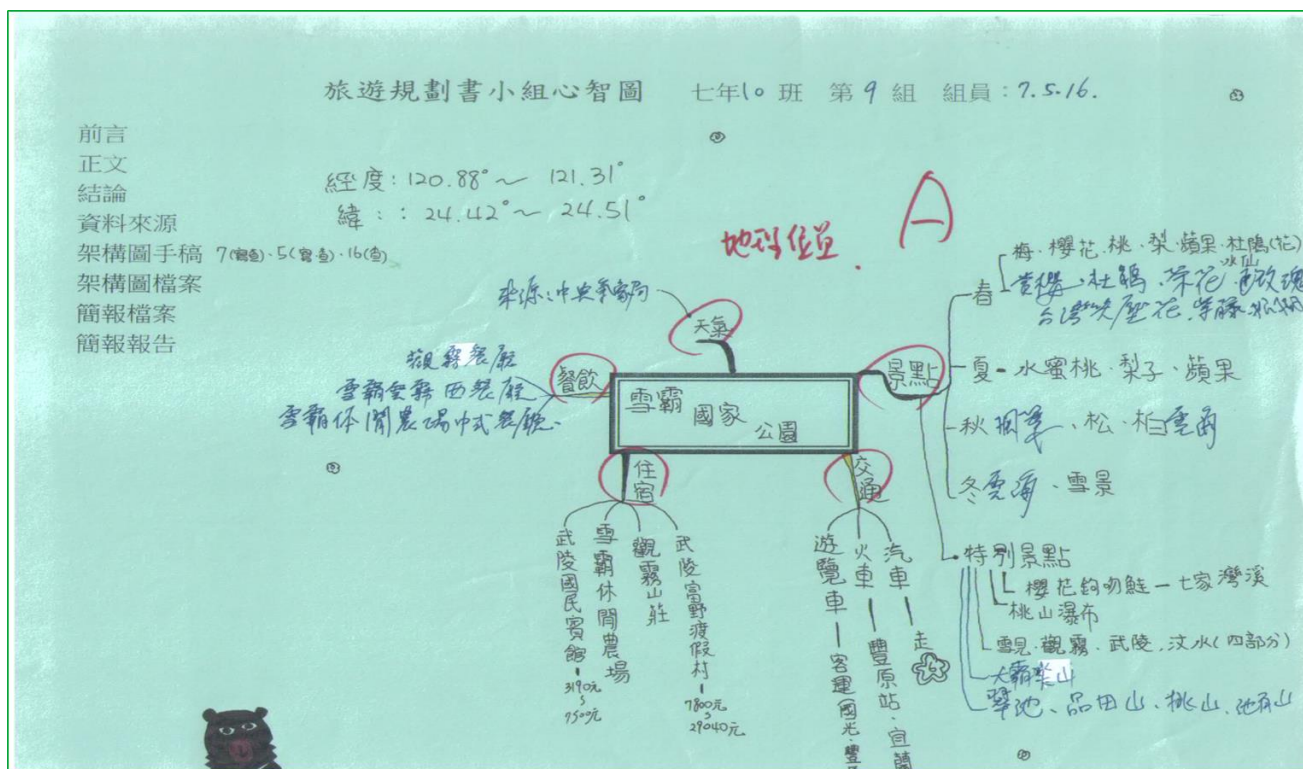 旅遊規劃書小組心智圖 七年10班 第9組 組員:7.5.16.
前言
正文
結論
資料來源
架構圖手稿 7(寫查)·5(寫查)·16(查)
架構圖檔案
簡報檔案
簡報報告
經度:120.88°~ 121.31°
緯:: 24.42°~ 24.51°
A
來源:中央氣象局
天氣
餐飲
觀霧餐廳
雪霸休閒農場中式餐廳.
雪霸
國家
公園
景點
春
梅·櫻花·桃·梨·蘋果·杜鵑(花)
水仙
夏-水蜜桃·梨子·蘋果
秋 楓葉、松·柏 雲海
冬 雲海、雪景
特別景點
櫻花鉤吻鮭-七家灣溪
桃山瀑布
雪見·觀霧·武陵·汶水(四部分)
大霸尖山
翠池、品田山、桃山、池有山
住宿
武陵國民賓館-3190元~7500元
雪霸休閒農場
觀霧山莊
武陵富野渡假村-7800元~29040元
交通
遊覽車-客運國光·豐
火車-豐原站·宜蘭
汽車-走